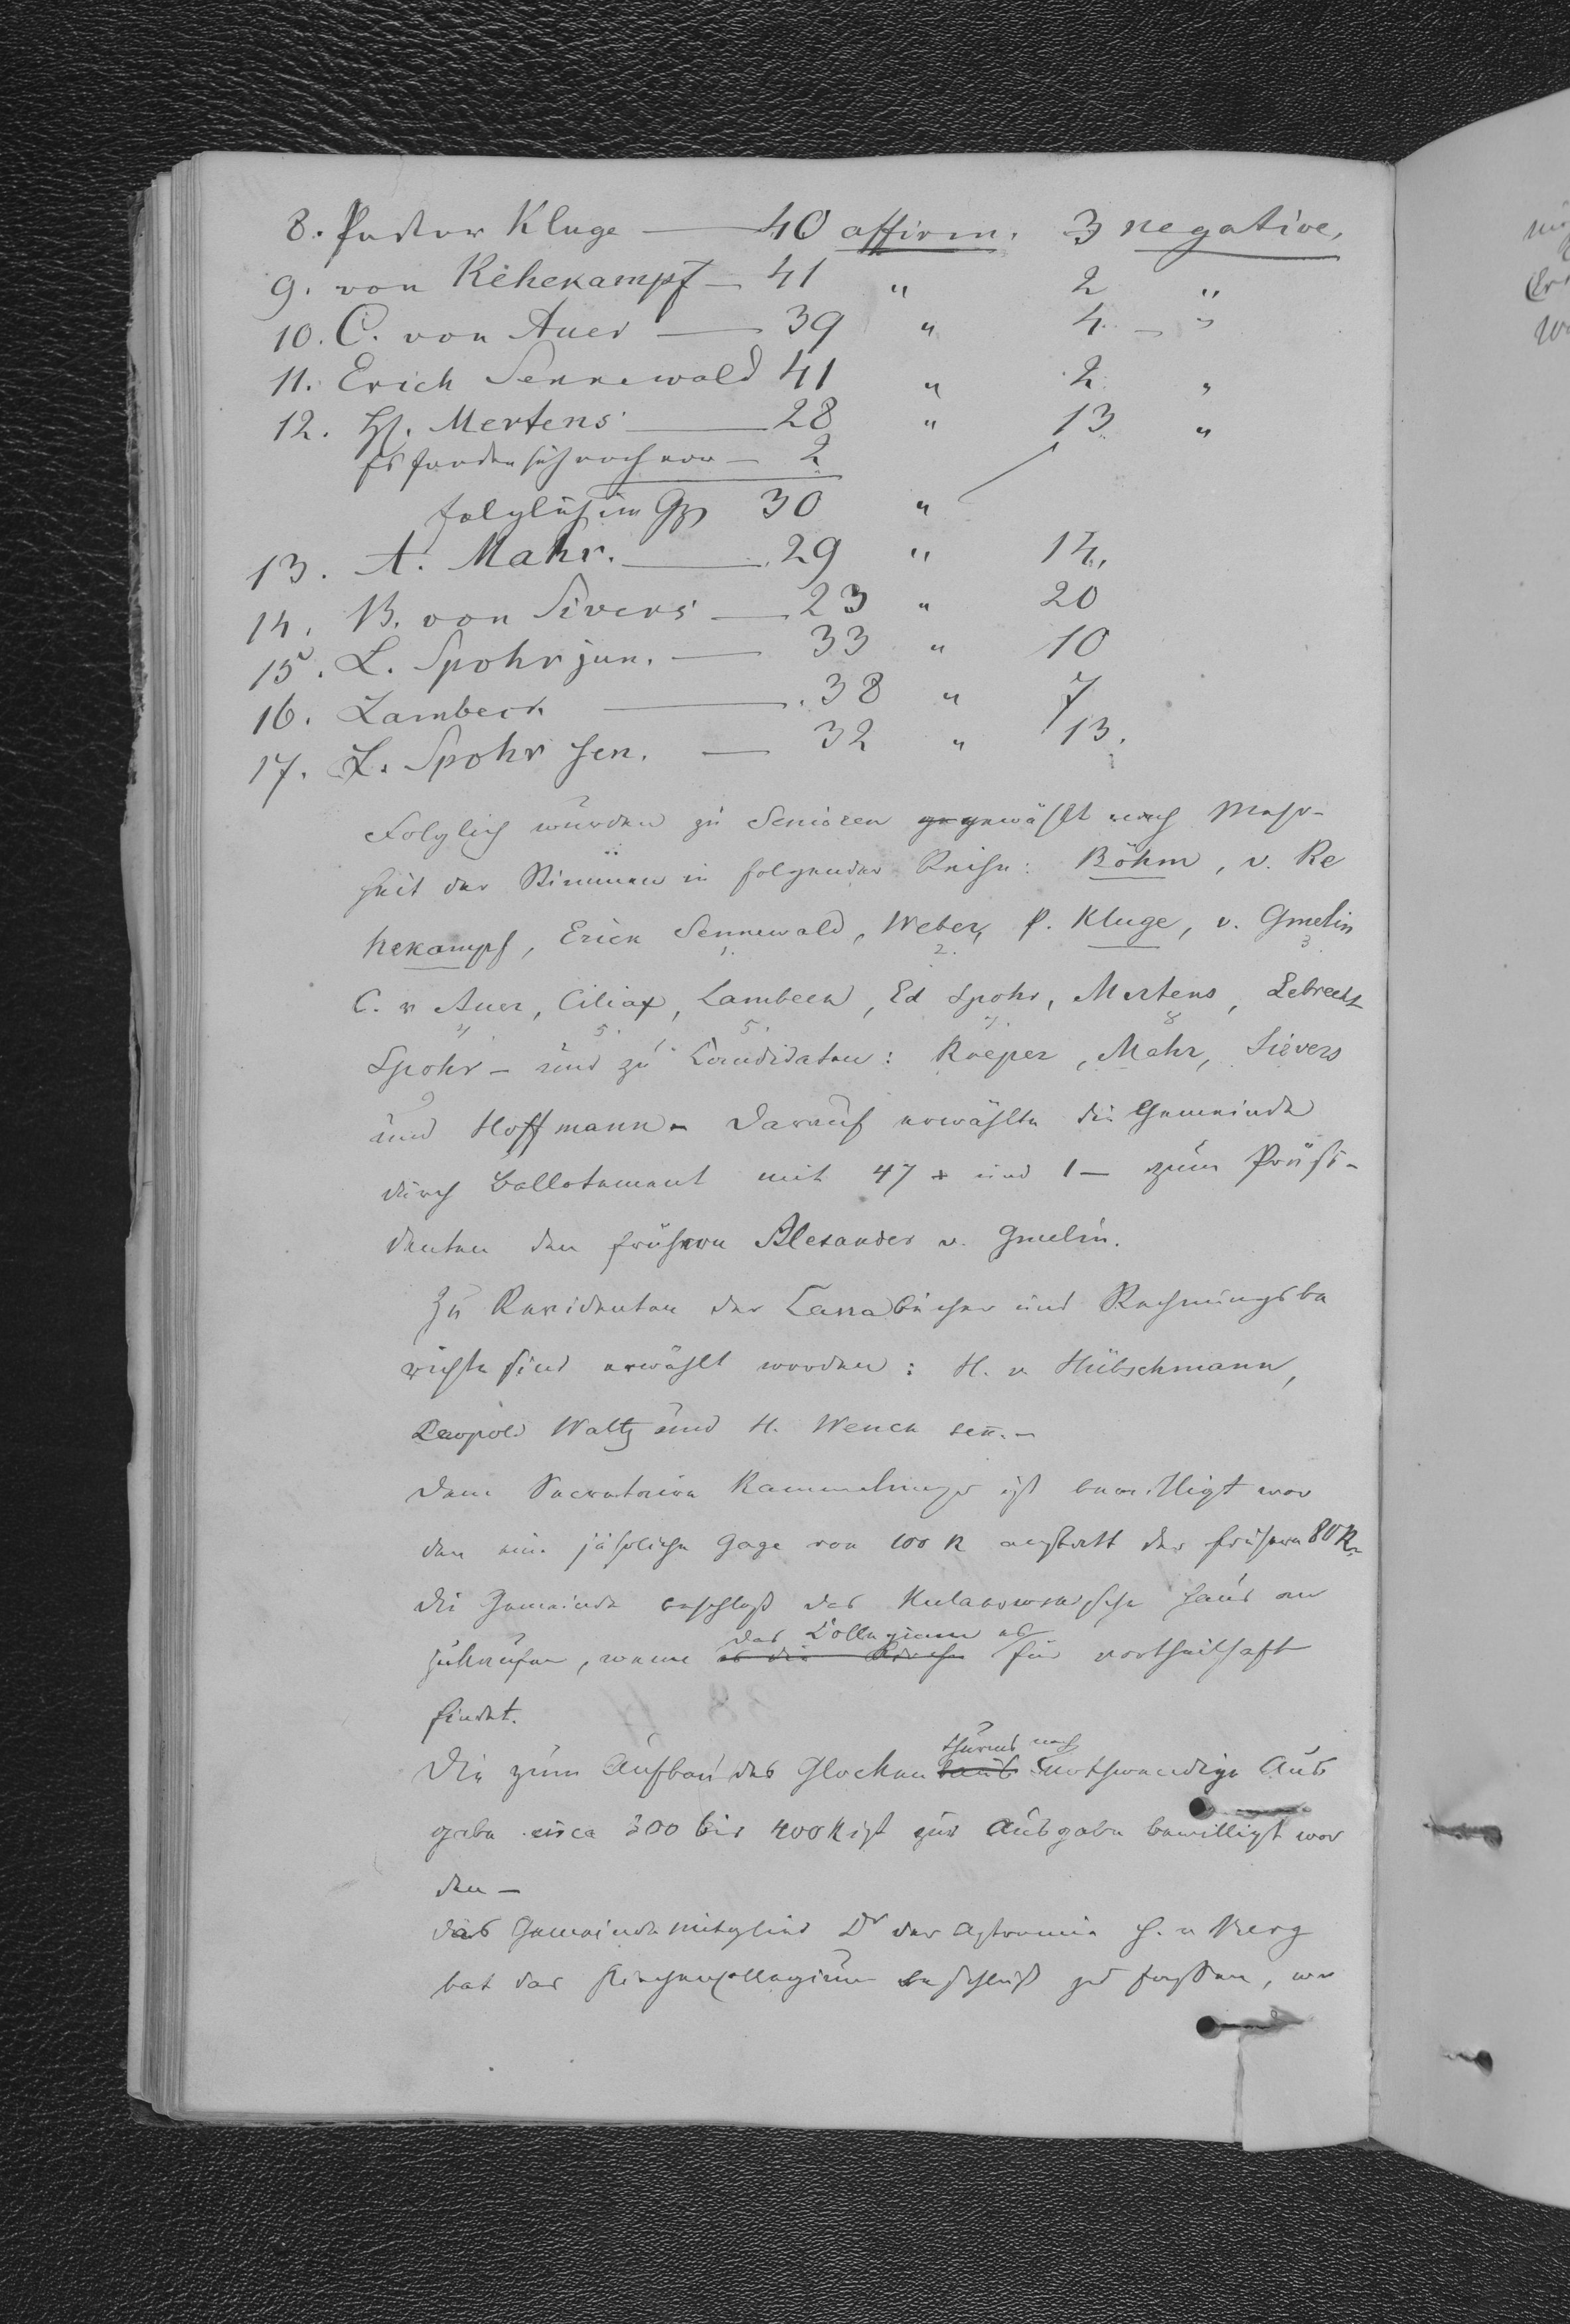 8. Pastor Kluge — 40 affirm. 3 negative,
9. von Rehekampf — 41 " 2 "
10. C. von Auer — 39 " 4 — "
11. Erich Sennewald 41 " 2 "
12. H. Mertens — 28 " 13 "
Es fanden sich noch vor — 2
folglich im Gz 30 "
13. A. Mahr. — 29 " 14,
14. B. von Sivers — 23 " 20
15. L. Spohr jun. — 33 " 10
16. Lambeck — 38 " 7
17. L. Spohr sen. — 32 " 13.
Folglich wurden zu Senioren ge gewählt nach Mehr-
heit der Stimmen in folgender Reihe: Böhm, v. Re
hekampf, Erick Sennewald, Weber, P. Kluge, v. Gmelin
1. 2. 3.
C. v Auer, Ciliax, Lambeck, Ed Spohr, Mertens, Lebrecht
4 5. 5. 7. 8
Spohr – und zu Candidaten: Roeper, Mahr, Sievers
und Hoffmann – Darauf erwählte die Gemeinde
durch Ballotement mit 47 + und 1 — zum Präsi-
denten den frühern Alexander v. Gmelin.
Zu Revidenten der Cassabücher und Rechnungsbe
richte sind erwählt worden: H. v Hübschmann,
Leopold Waltz und H. Wenck sen. –
Dem Secretairen Rammelmeyer ist bewilligt wor
den eine jährliche Gage von 100 R anstatt der frühern 80 R.
die Gemeinde beschloß das Kulakowskische Haus an
zukaufen, wenn das Collegium es für vortheilhaft
findet.
Die zum Aufbau des Glocken thurms noch nothwendige Aus
gabe circa 300 bis 400 R ist zur Ausgabe bewilligt wor
den –
das Gemeindemitglied Dr der Astronomie F. v Berg
bat das Kirchencollegium Beschluß zu fassen, wo